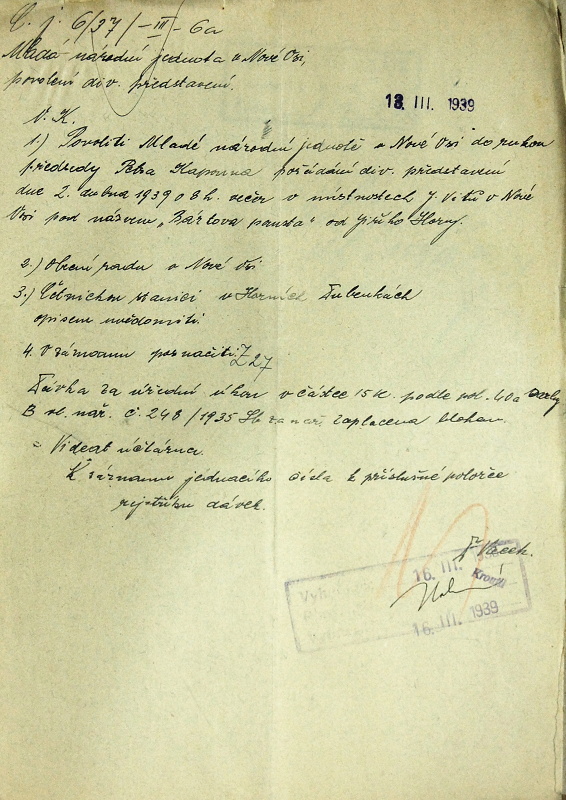 Č. j. 6/37/-III-6a
Mladá národní jednota v Nové Vsi,
povolení div. představení.
13. III. 1939
V. K.
1.) Povoliti Mladé národní jednotě v Nové Vsi do rukou
předsedy Petra pořádání div. představení
dne 2. dubna 1939 o 8 h. večer v místnostech J. Vítů v Nové
Vsi pod názvem „Bártova pomsta" od Jiřího
2.) Obecní radu v Nové Vsi
3.) Četnickou stanici v Horních Dubenkách
opisem uvědomiti.
4. V záznamu poznačiti. Z 27
Dávka za úřední úkon v částce 15 K podle pol. 40a
B vl. nař. č 248/1935 Sb zaplacena
Videat účtárna.
K záznamu jednacího čísla k příslušné položce
rejstříku dávek.
Vacek.
16. III.
16. III. 1939